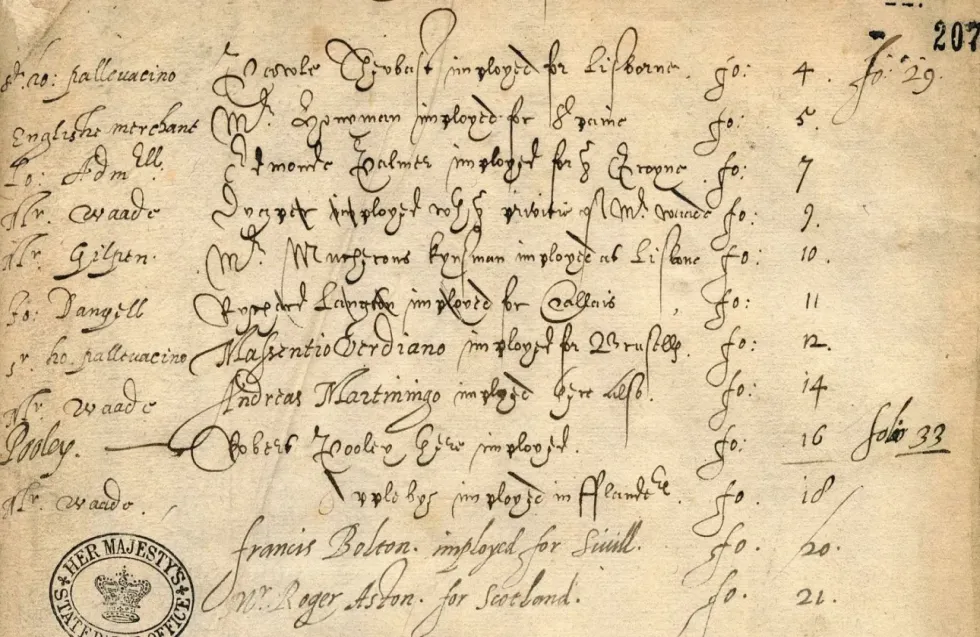 207
Sr. ho: pallevacino Pasrole Theobast imployed for Lisborne. fo: 4. fo: 29.
Englishe merchant Mr. Honyman imployed for Spaine fo: 5.
Lo: Admll. Edmonde Palmer imployed for ye Groyne. fo: 7
Mr. Waade imployed wth ye privitie of Mr. Waade fo: 9.
Mr. Gilpen. Mr. Mucherons kynsman imployed at Lisbone fo: 10.
Jo: Dangell Rychard Langton imployed for Callais, fo: 11
Sr. ho. pallevacino Massentio Verdiano imployed for Brusells. fo: 12.
Mr. Waade Andreas Martiningo imployed here also. fo: 14
Pooley. Robert Pooley here imployed. fo: 16 folio 33
Mr. Waade. Applebye imployed in fflanders. fo. 18
francis Bolton. imployed for Sivill. fo. 20.
Mr. Roger Aston. for Scotland. fo. 21.
HER MAJESTY'S STATE PAPER OFFICE